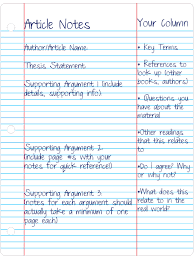 Article Notes
Author/Article Name:
Thesis Statement:
Supporting Argument 1 (include
details, supporting info):
Supporting Argument 2:
(include page #s with your
notes for quick reference!)
Supporting Argument 3:
(notes for each argument should
actually take a minimum of one
page each)
Your Column
• Key Terms
• References to
look up (other
books, authors)
• Questions you
have about the
material
•Other readings
that this relates
to
•Do I agree? Why
or why not?
•What does this
relate to in the
real world?